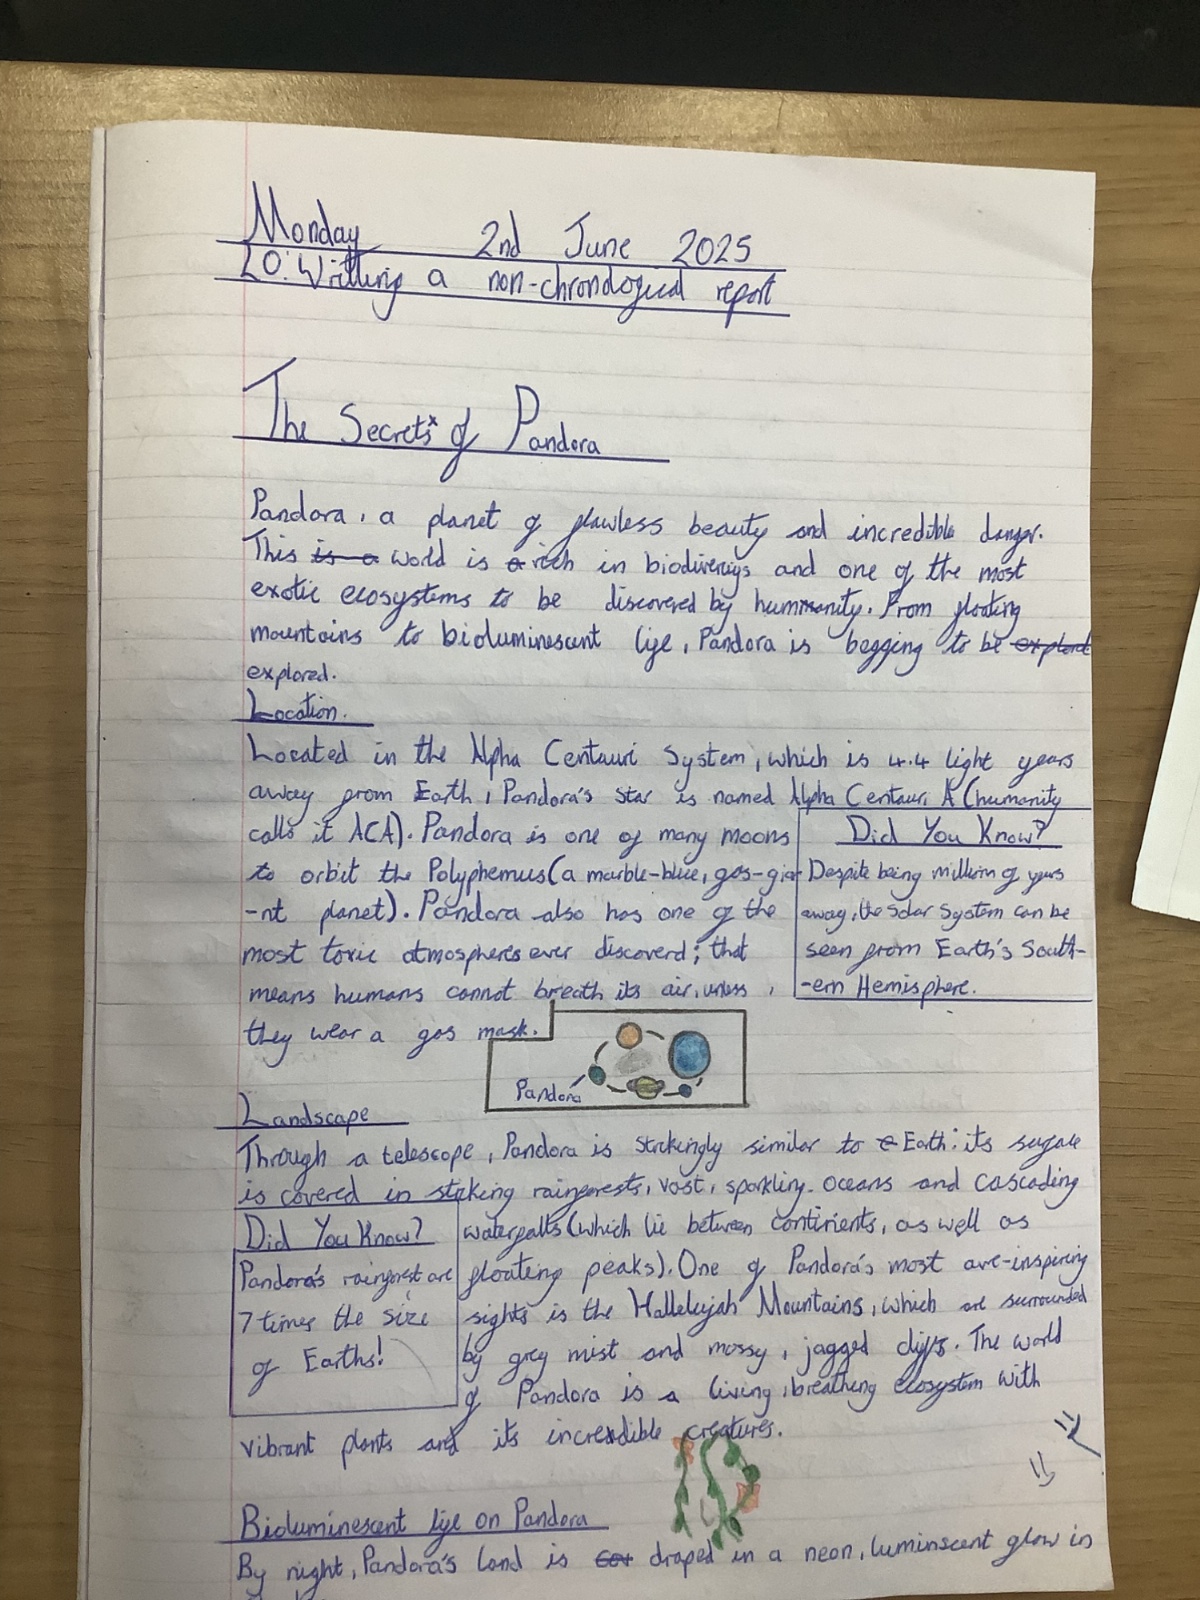 Monday 2nd June 2025
LO: Writing a non-chronological report
The Secrets of Pandora
Pandora, a planet of flawless beauty and incredible danger.
This is a world is a rich in biodiversity and one of the most
exotic ecosystems to be discovered by hummanity. From floating
mountains to bioluminescent life, Pandora is begging to be explored
explored.
Location.
Located in the Alpha Centauri System, which is 4.4 light years
away from Earth, Pandora's star is named Alpha Centauri A (humanity
calls it ACA). Pandora is one of many moons
to orbit the Polyphemus (a marble-blue, gas-gia-
-nt planet). Pandora also has one of the
most toxic atmospheres ever discoverd; that
means humans cannot breath its air, unless
they wear a gas mask.
Did You Know?
Despite being million of years
away, the Solar System can be
seen from Earth's South-
-ern Hemisphere.
Pandora
Landscape
Through a telescope, Pandora is strikingly similar to e Earth: its surface
is covered in striking rainforests, vast, sparkling oceans and cascading
waterfalls (which lie between continents, as well as
floating peaks). One of Pandora's most awe-inspiring
sights is the Hallelujah Mountains, which are surrounded
by grey mist and mossy, jagged cliffs. The world
of Pandora is a living, breathing ecosystem with
vibrant plants and its incredible creatures.
Did You Know?
Pandora's rainforest are
7 times the size
of Earths!
Bioluminescent life on Pandora
By night, Pandora's land is draped in a neon, luminscent glow in